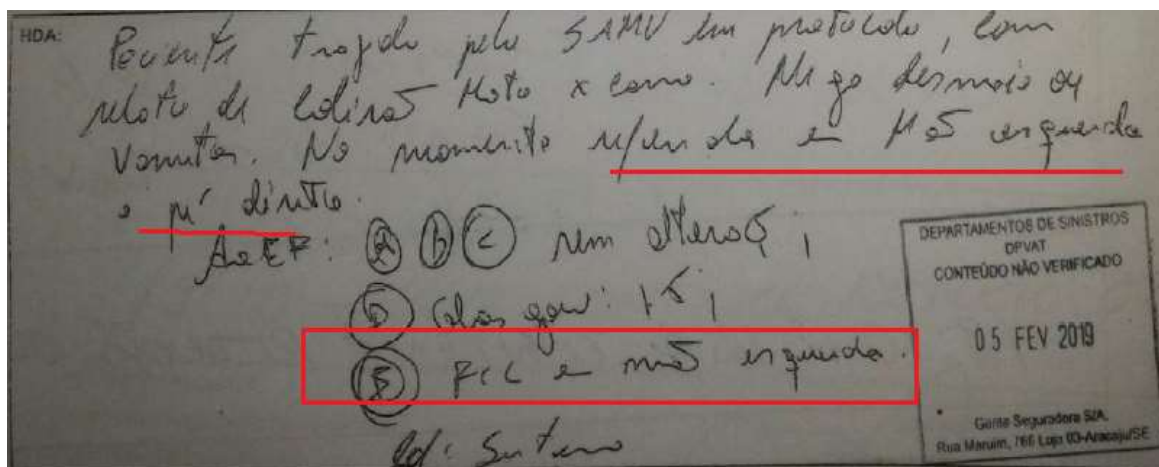 HDA:
Paciente trazido pelo SAMU em protocolo, com
relato de colisão Moto x carro. Nega desmaio ou
vomitos. No momento refere dor em Mão esquerda
e pé direito.
Ao EF: (a) (b) (c) sem alteraç;
(D) Glasgow: 15;
(E) FCC em mão esquerda.
Cd: Sutura
DEPARTAMENTOS DE SINISTROS
DPVAT
CONTEÚDO NÃO VERIFICADO
05 FEV 2019
Gente Seguradora S/A.
Rua Maruim, 766 Loja 03-Aracaju/SE